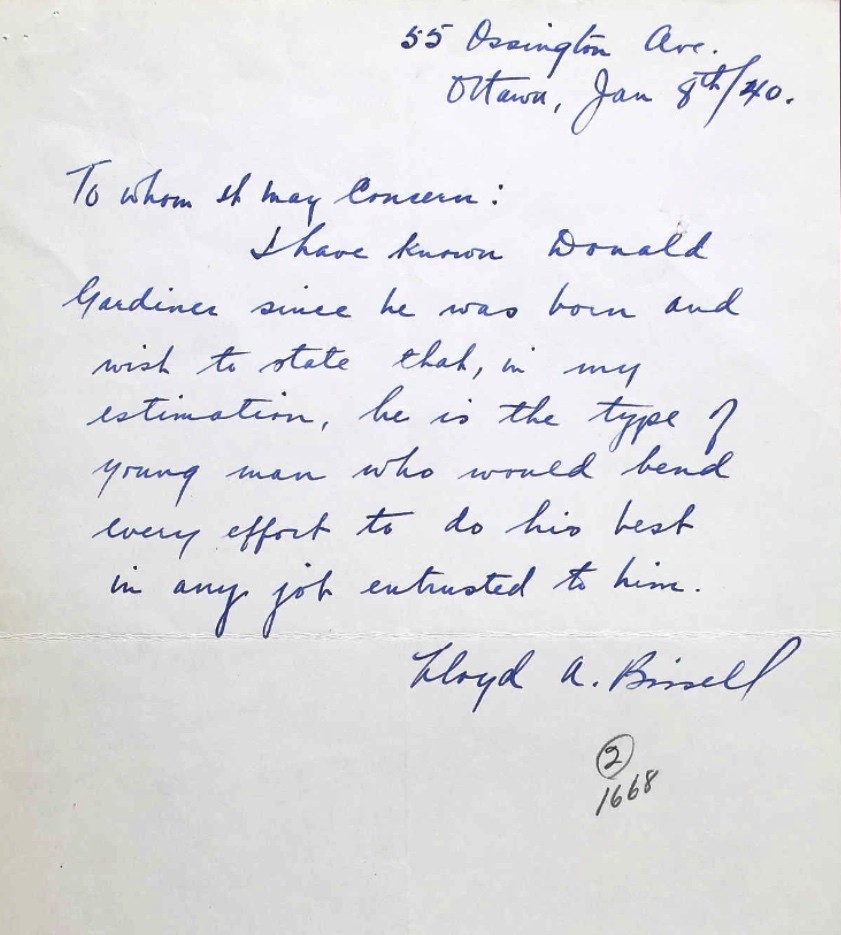 55 Ossington Ave.
Ottawa, Jan 8th/40.
To whom it may Concern:
I have known Donald
Gardiner since he was born and
wish to state that, in my
estimation, he is the type of
young man who would bend
every effort to do his best
in any job entrusted to him.
Lloyd A. Bissell
2
1668